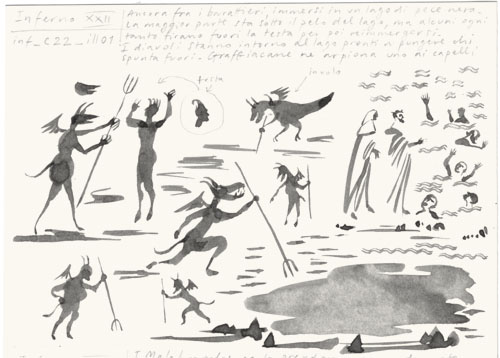 Inferno XXII
inf_c22_ill01
Ancora fra i barattieri, immersi in un lago di pece nera.
La maggior parte sta sotto il pelo del lago, ma alcuni ogni
tanto tirano fuori la testa per poi reimmergersi.
I diavoli stanno intorno al lago pronti a pungere chi
spunta fuori. Graffiacane ne arpiona uno ai capelli
testa